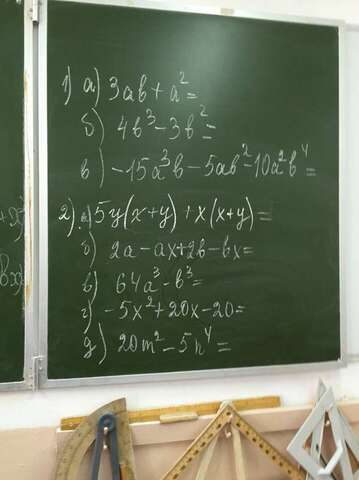 1) а) 3ab + a² =
б) 4b³ - 3b² =
в) -15a³b - 5ab² - 10a²b⁴ =
2) а) 5y(x+y) + x(x+y) =
б) 2a - ax + 2b - bx =
в) 64a³ - b³ =
г) -5x² + 20x - 20 =
д) 20m² - 5n⁴ =